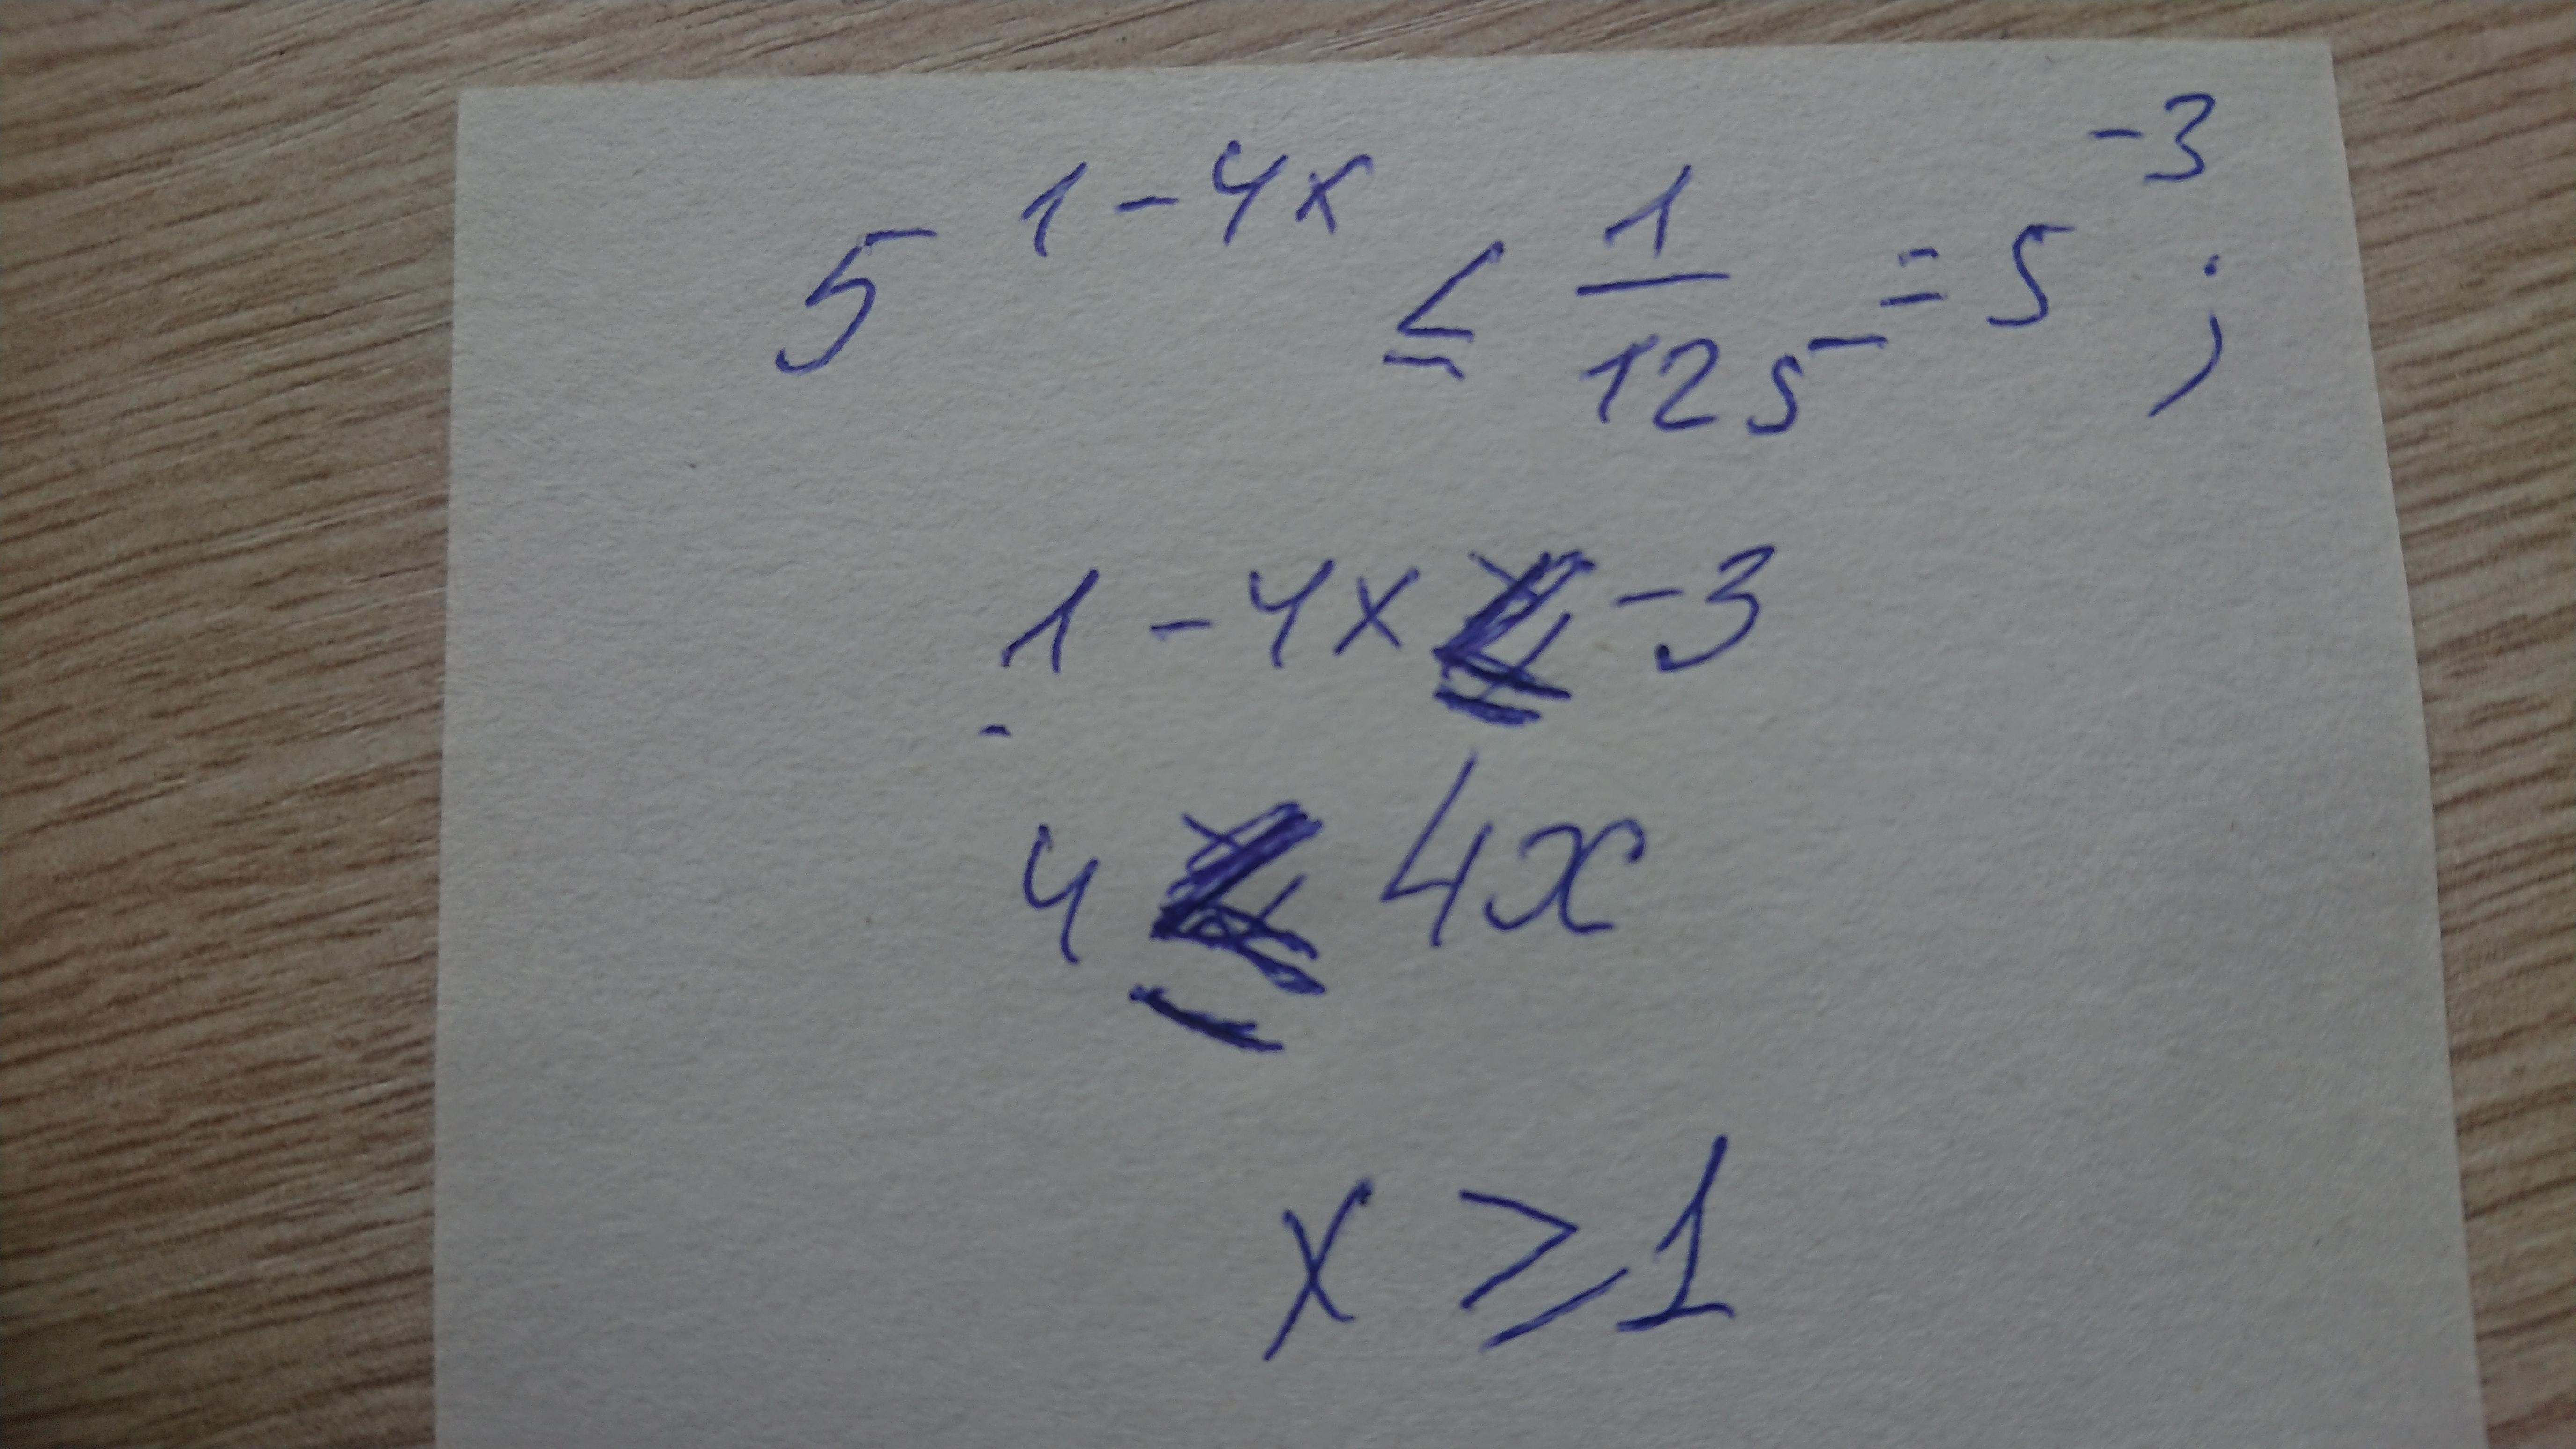 5^{1-4x} ≤ 1/125 = 5^{-3};
1-4x ≤ -3
4 ≤ 4x
x ⩾ 1